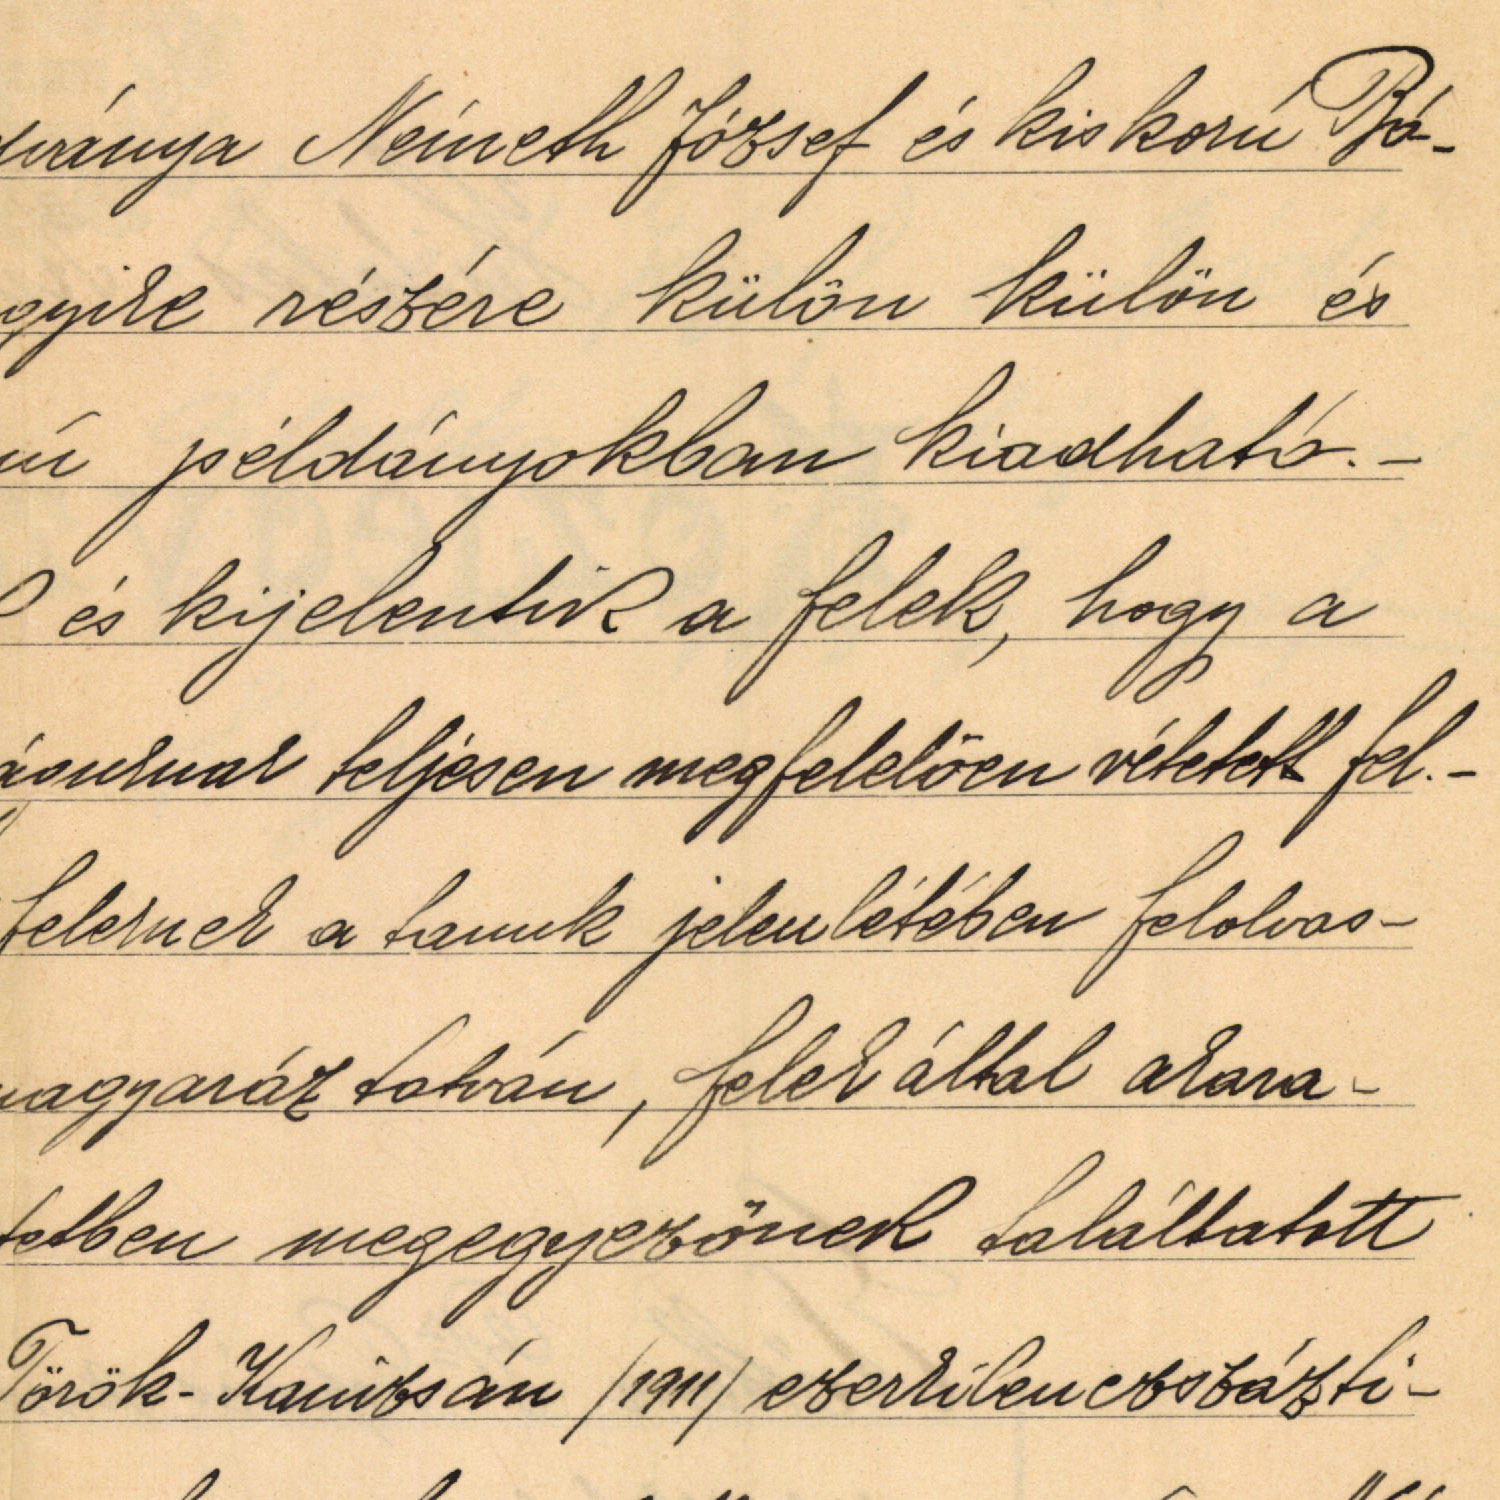 ványa Németh József és kiskorú Bá-
gyike részére külön külön és
mú példányokban kiadható.-
és kijelentik a felek, hogy a
águknak teljesen megfelelően vétetett fel.-
feleknek a tanuk jelenlétében felolvas-
magyaráztatván, felek által akara-
tetben megegyezőnek találtatott
Török-Kanizsán /1911/ ezerkilenczszázti-